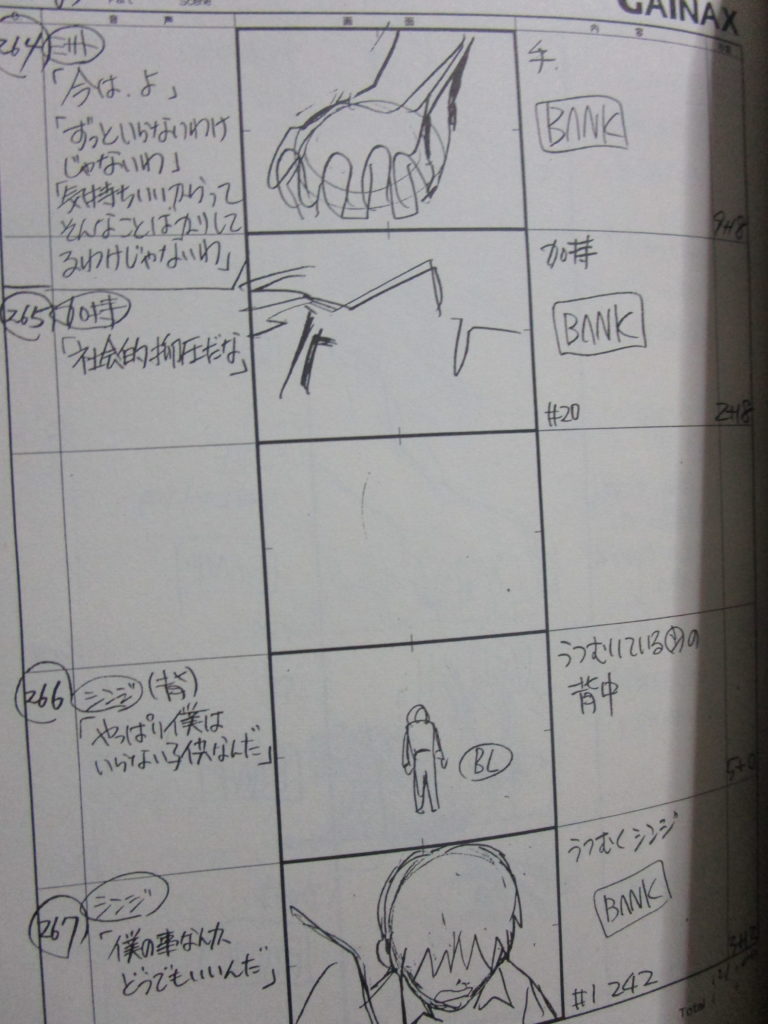 GAINAX
音 声
画 面
内 容
264
「今は.よ」
「ずっといらないわけ
じゃないわ」
「気持ちいいからって
そんなことばかりして
るわけじゃないわ」
手.
BANK
9+8
265
加持
「社会的抑圧だな」
加持
BANK
#20
2+8
266
シンジ(背)
「やっぱり僕は
いらない子供なんだ」
BL
うつむいているの
背中
5+0
267
シンジ
「僕の事なんか、
どうでもいいんだ」
うつむくシンジ
BANK
#1 242
Total